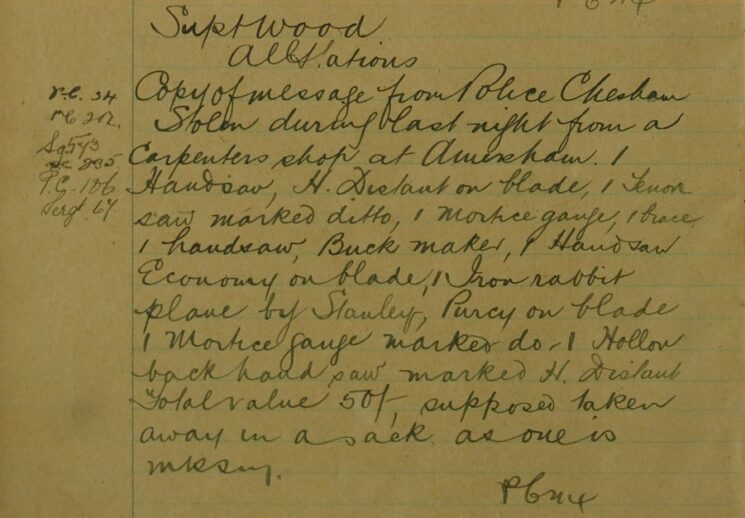 Supt Wood
All Stations
P.C. 34
PC 212.
Sgt 573
PC 235
P.C. 106
Sergt. 67
Copy of message from Police Chesham
Stolen during last night from a
Carpenters shop at Amersham. 1
Handsaw, H. Distant on blade, 1 Tenon
saw marked ditto, 1 Mortice gauge, 1 brace,
1 handsaw, Buck maker, 1 Handsaw
Economy on blade, 1 Iron rabbit
plane by Stanley, Purcy on blade
1 Mortice gauge marked do - 1 Hollow
back hand saw marked H. Distant
Total value 50/-, supposed taken
away in a sack as one is